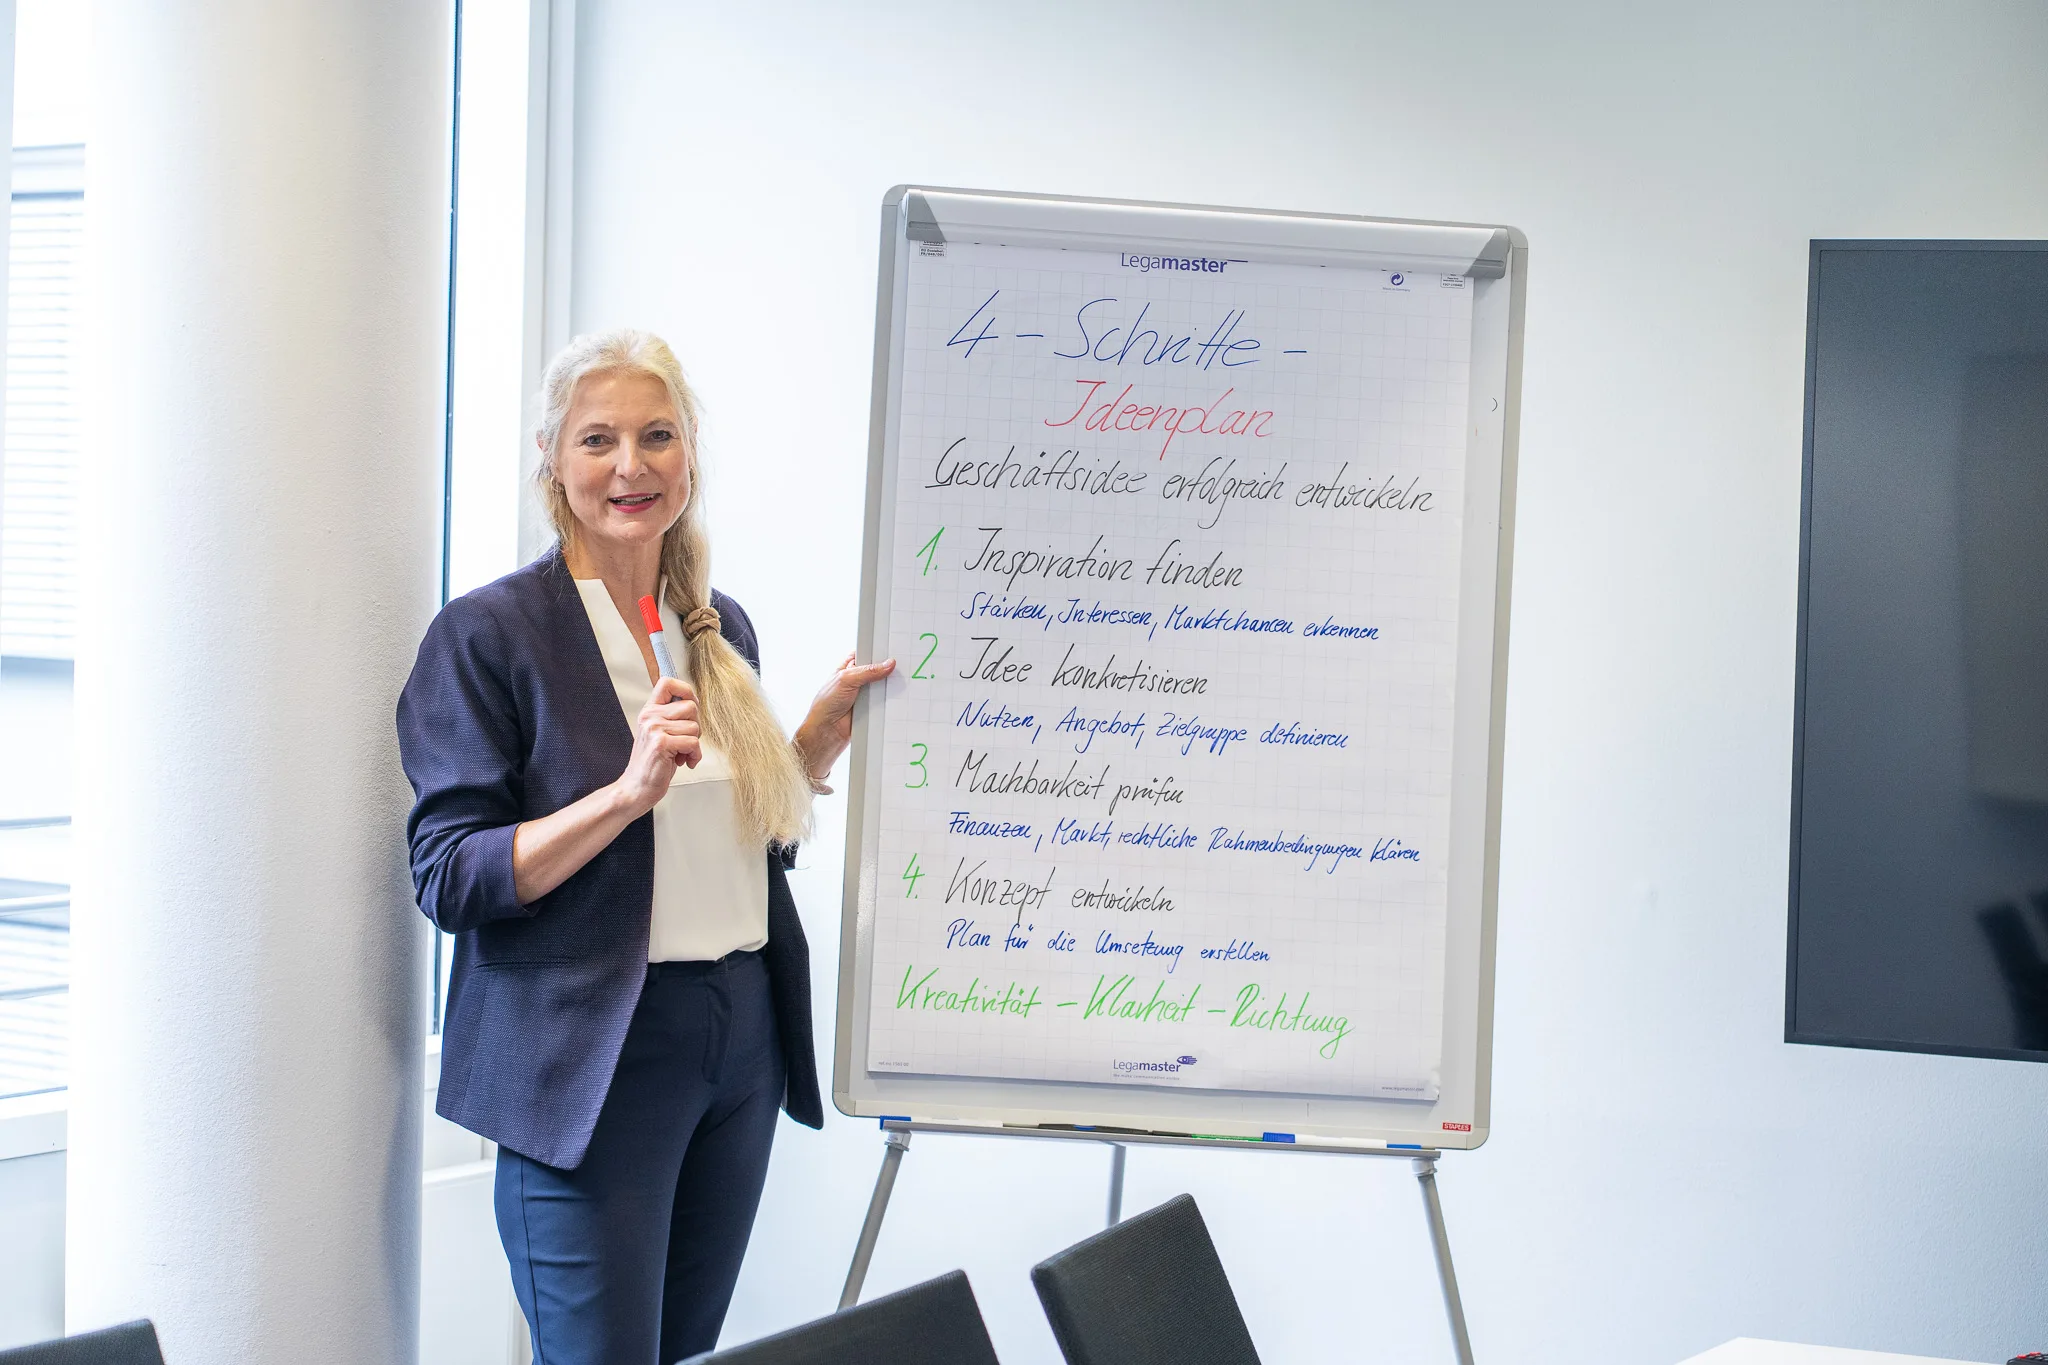 Legamaster
4-Schritte-
Ideenplan
Geschäftsidee erfolgreich entwickeln
1. Inspiration finden
Stärken, Interessen, Marktchancen erkennen
2. Idee konkretisieren
Nutzen, Angebot, Zielgruppe definieren
3. Machbarkeit prüfen
Finanzen, Markt, rechtliche Rahmenbedingungen klären
4. Konzept entwickeln
Plan für die Umsetzung erstellen
Kreativität - Klarheit - Richtung
Legamaster
STAPLES